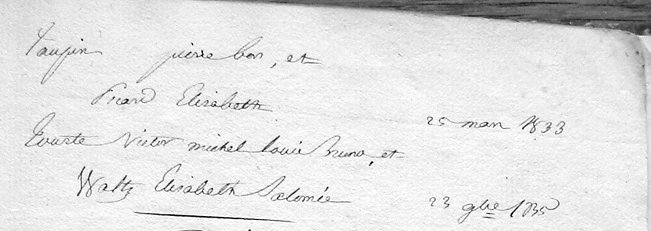 Taupin pierre bon, et
Picard Elisabeth 25 mars 1833
Tourte Victor michel louis bruno, et
Waltz Elisabeth Salomée 23 9bre 1835